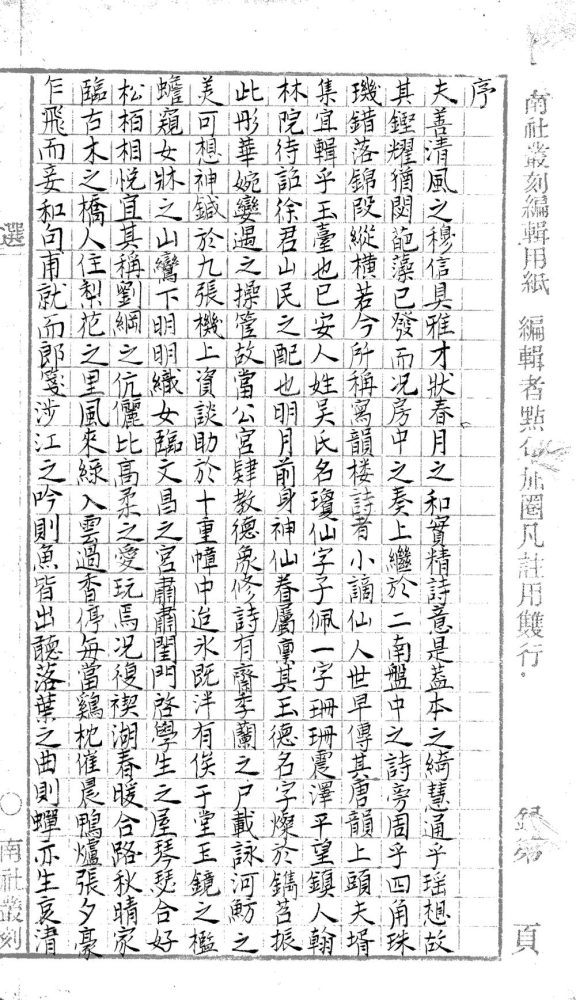 南社叢刻編輯用紙 編輯者點句加圈凡註用雙行.
頁
序
夫善清風之穆信具雅才狀春月之和實精詩意是蓋本之綺慧通乎瑶想故
其鏗耀猶閟葩藻已發而况房中之奏上繼於二南盤中之詩旁周乎四角珠
璣錯落錦段縱横若今所稱寫韻楼詩者小謫仙人世早傳其唐韻上頭夫壻
集宜輯乎玉臺也已安人姓吴氏名瓊仙字子佩一字珊珊震澤平望鎮人翰
林院待詔徐君山民之配也明月前身神仙眷屬禀其玉德名字燦於鐫苕振
此彤華婉孌遇之操管故當公宮肆教德象修詩有齋季蘭之尸載詠河魴之
美可想神鍼於九張機上資談助於十重幛中迨氷既泮有俟于堂玉鏡之檻
蟾窺女牀之山鸞下明明織女臨文昌之宮肅肅閨門啓學生之屋琴瑟合好
松栢相悦宜其稱劉綱之伉儷比高柔之愛玩焉况復禊湖春暖合路秋晴家
臨古木之橋人住梨花之里風來緑入雲過香停每當鷄枕催晨鴨爐張夕豪
乍飛而妾和句甫就而郎箋涉江之吟則魚皆出聽落葉之曲則蟬亦生哀清
選
〇
南社叢刻